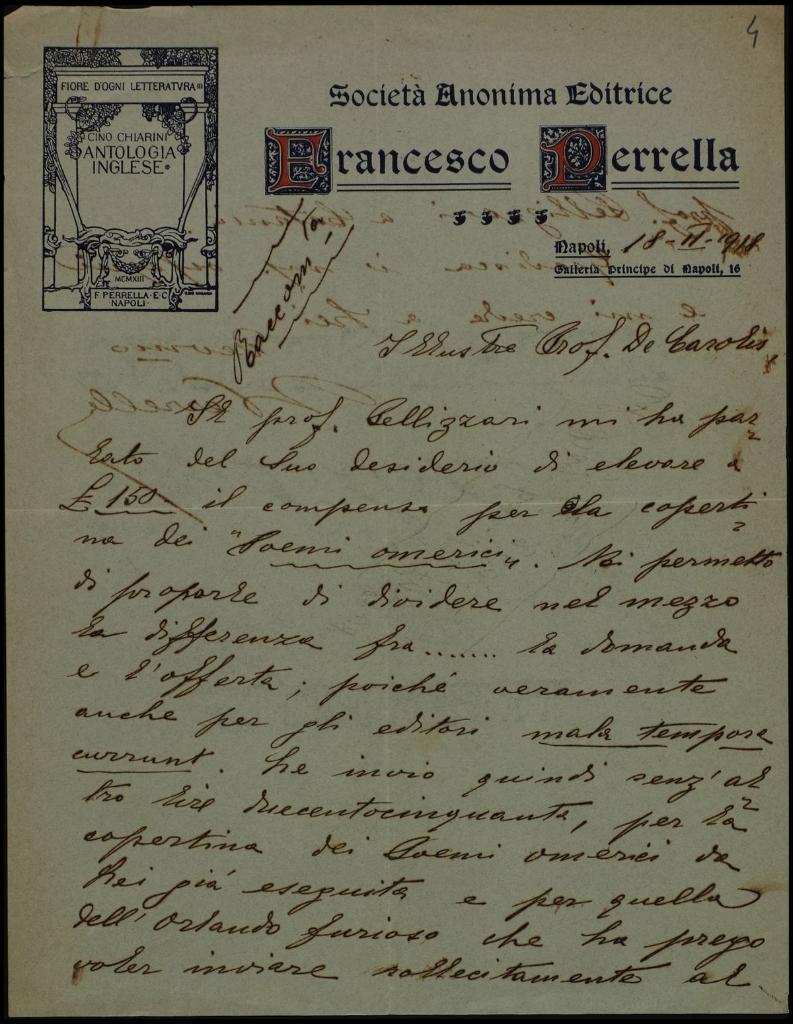 4
FIORE D'OGNI LETTERATVRA
CINO CHIARINI
ANTOLOGIA
INGLESE
MCMXIII
F. PERRELLA · E · C
NAPOLI
Società Anonima Editrice
Francesco Perrella
Napoli, 18-II-1918
Galleria Principe di Napoli, 16
Raccom.ta
Illustre Prof. De Carolis,
Il prof. Pellizzari mi ha par
lato del Suo desiderio di elevare a
£ 150 il compenso per la coperti
na dei "Poemi omerici". Mi permetto
di proporle di dividere nel mezzo
la differenza fra ....... la domanda
e l'offerta; poiché veramente
anche per gli editori mala tempora
currunt. Le invio quindi senz'al
tro lire duecentocinquanta, per la
copertina dei Poemi omerici da
Lei già eseguita e per quella
dell'Orlando furioso che La prego
voler inviare sollecitamente al